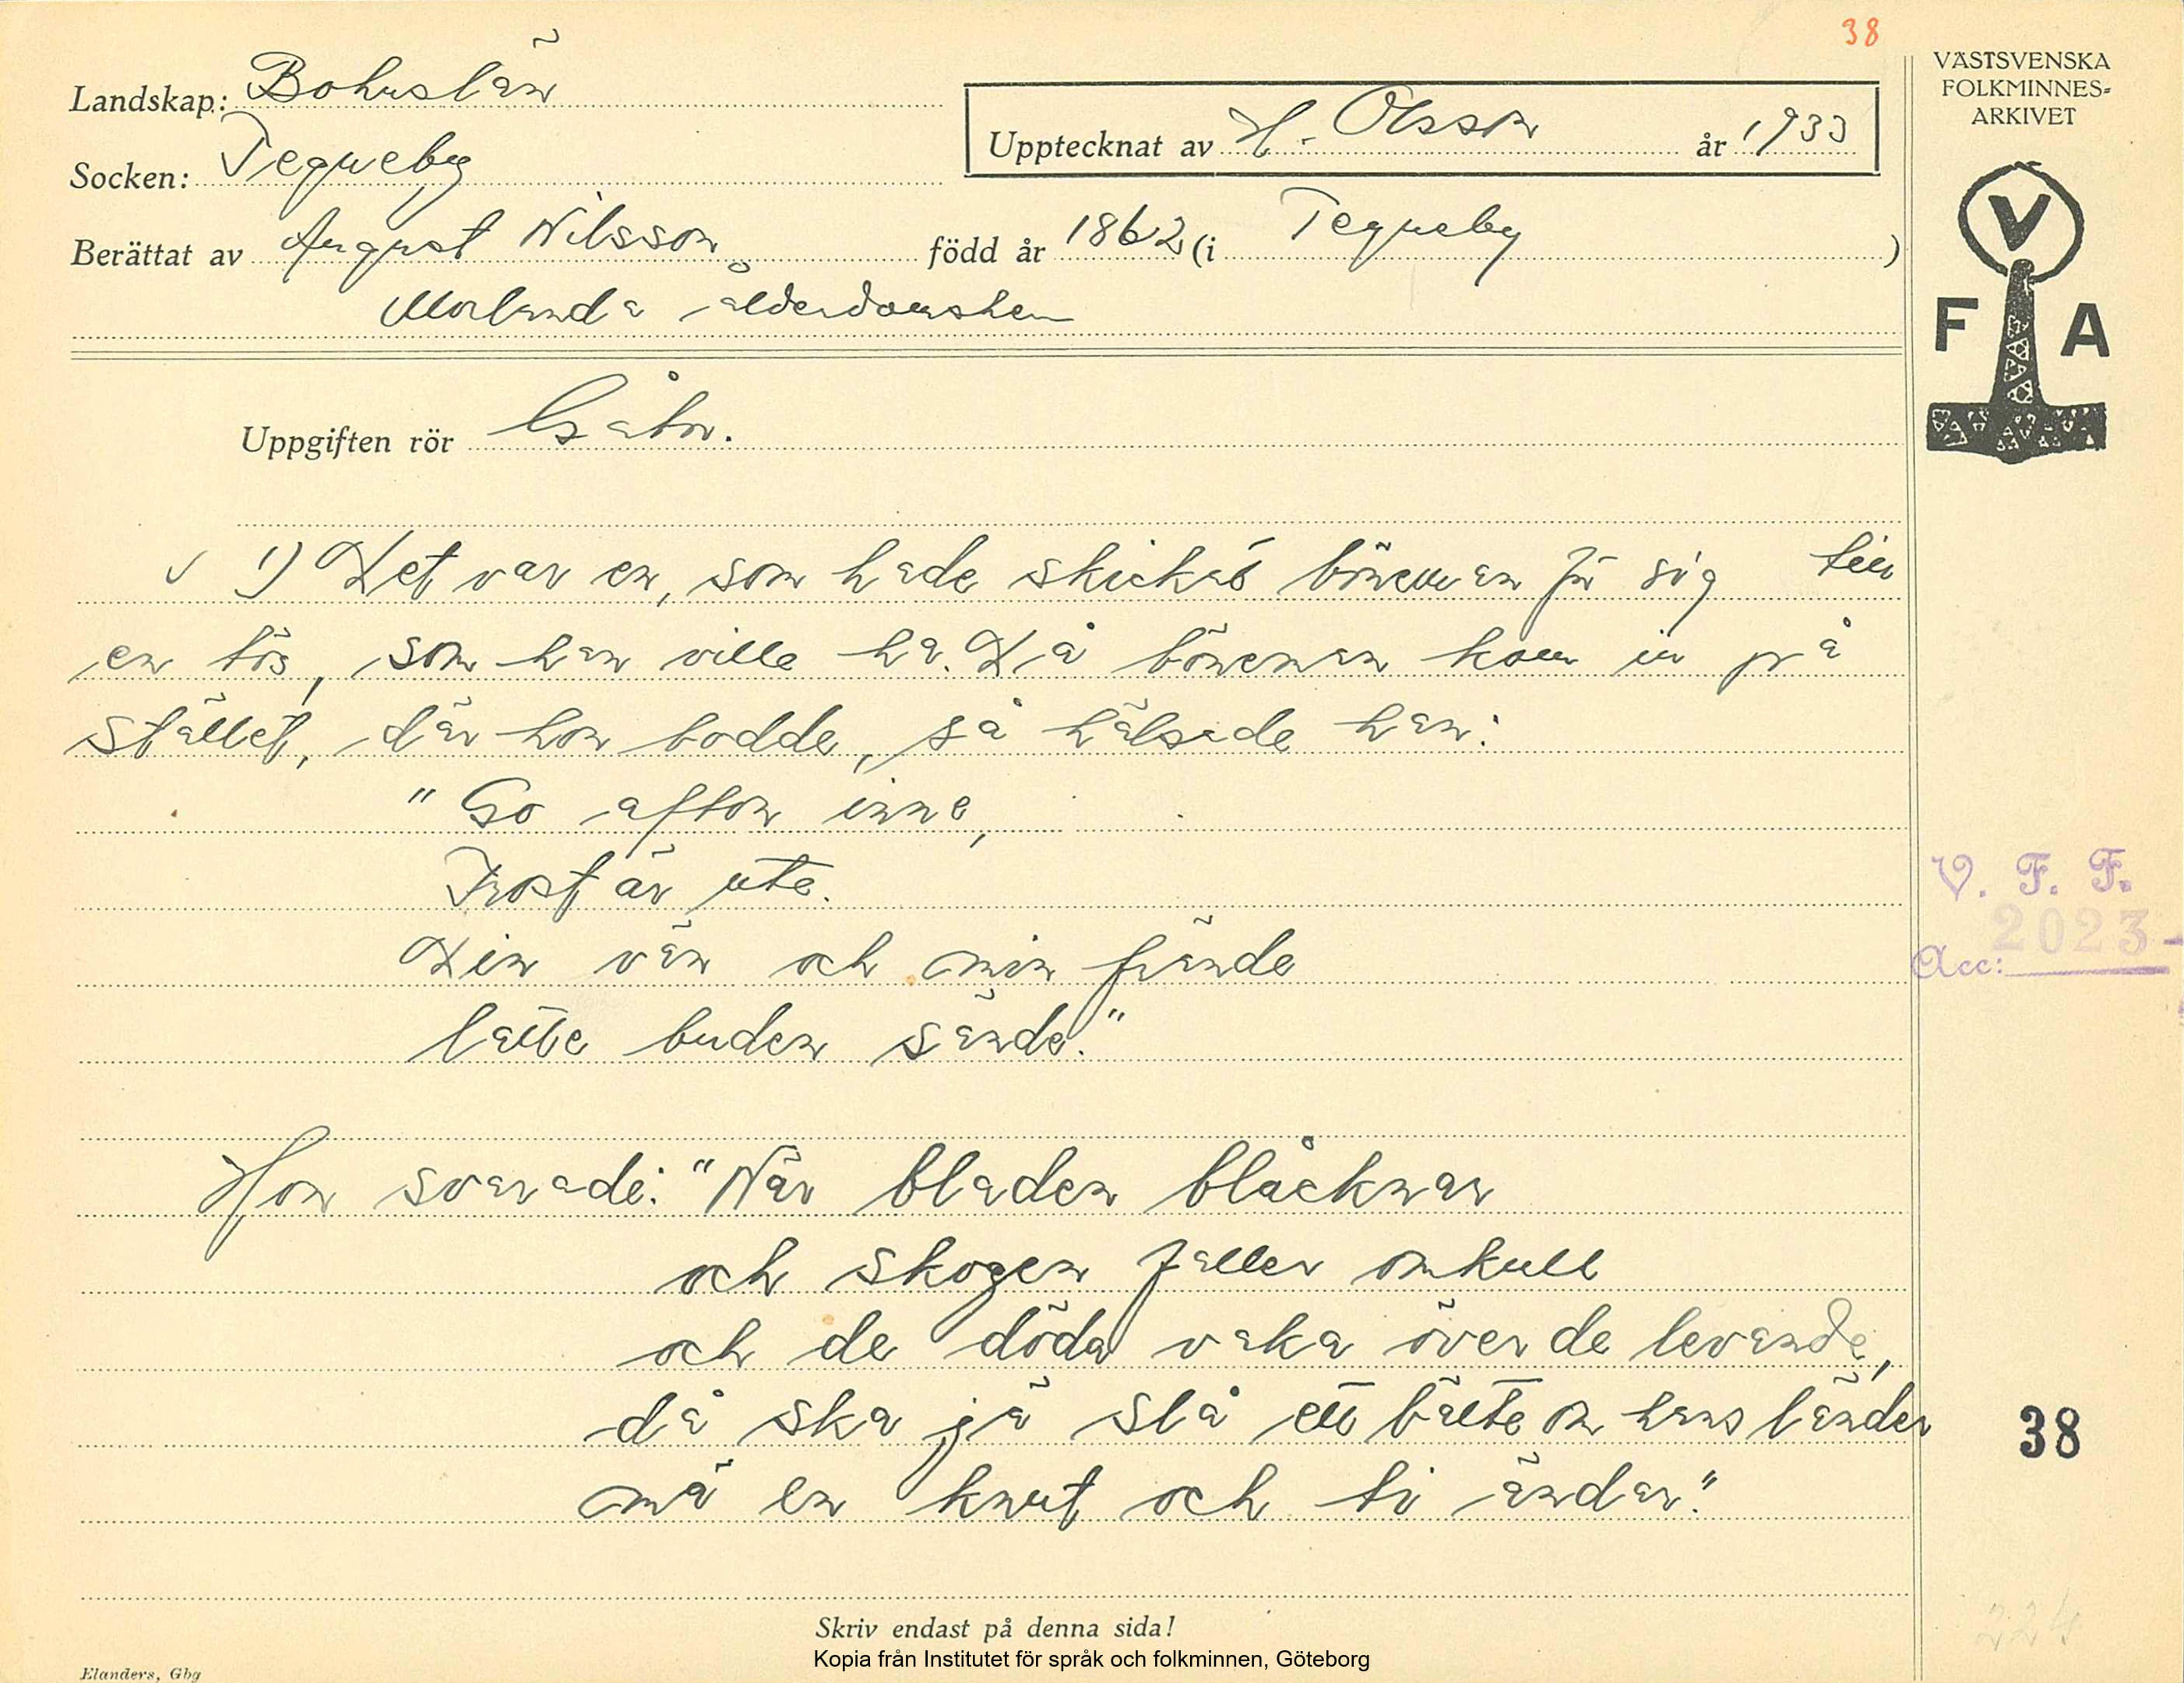 38
VÄSTSVENSKA
FOLKMINNES-
ARKIVET
Landskap: Bohuslän
Upptecknat av H. Olsson år 1933
Socken: Tegneby
Berättat av August Nilsson född år 1862 (i Tegneby)
Morlanda ålderdomshem
V
F A
Uppgiften rör Gåtor.
√ 1) Det var en, som hade skickat böneman för sig till
en tös, som han ville ha. Då böneman kom in på
stället, där hon bodde, så hälsade han:
"Go afton inne,
Frost är ute.
Din vän och min frände
lätte buden sände."
V. F. F.
Acc: 2023-
Hon svarade: "När bladen blåcknar
och skogen faller omkull
och de döda vaka över de levande,
då ska jä slå ett bälte om hans länder
mä en knut och ti ändar."
38
224
Skriv endast på denna sida!
Kopia från Institutet för språk och folkminnen, Göteborg
Elanders, Gbg